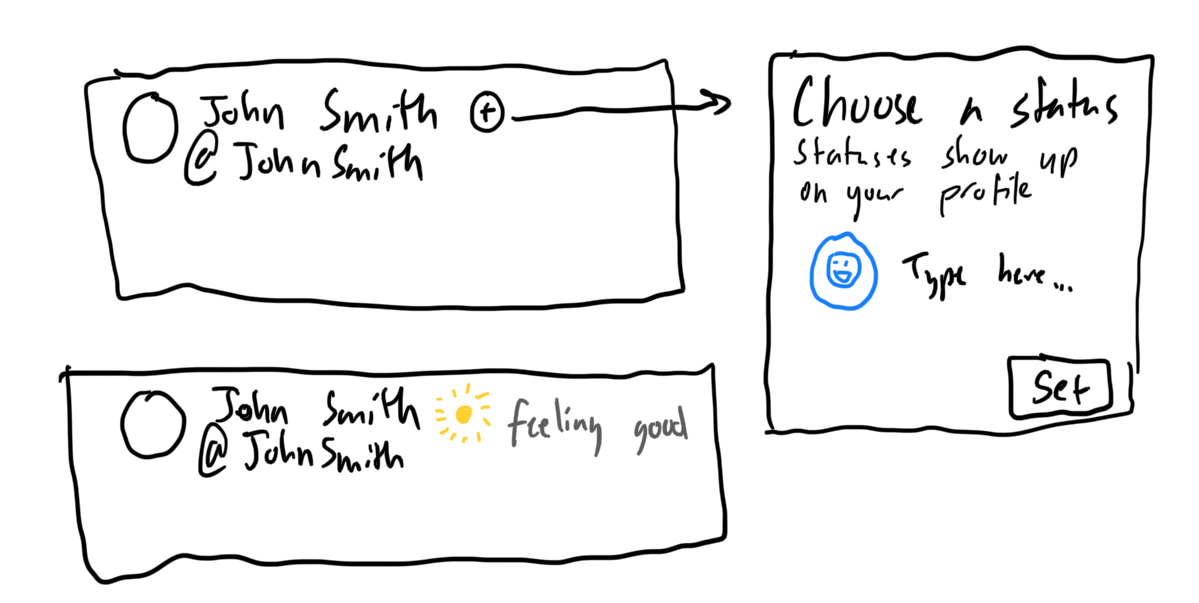 John Smith +
@JohnSmith
Choose a status
Statuses show up
on your profile
Type here...
Set
John Smith feeling good
@JohnSmith